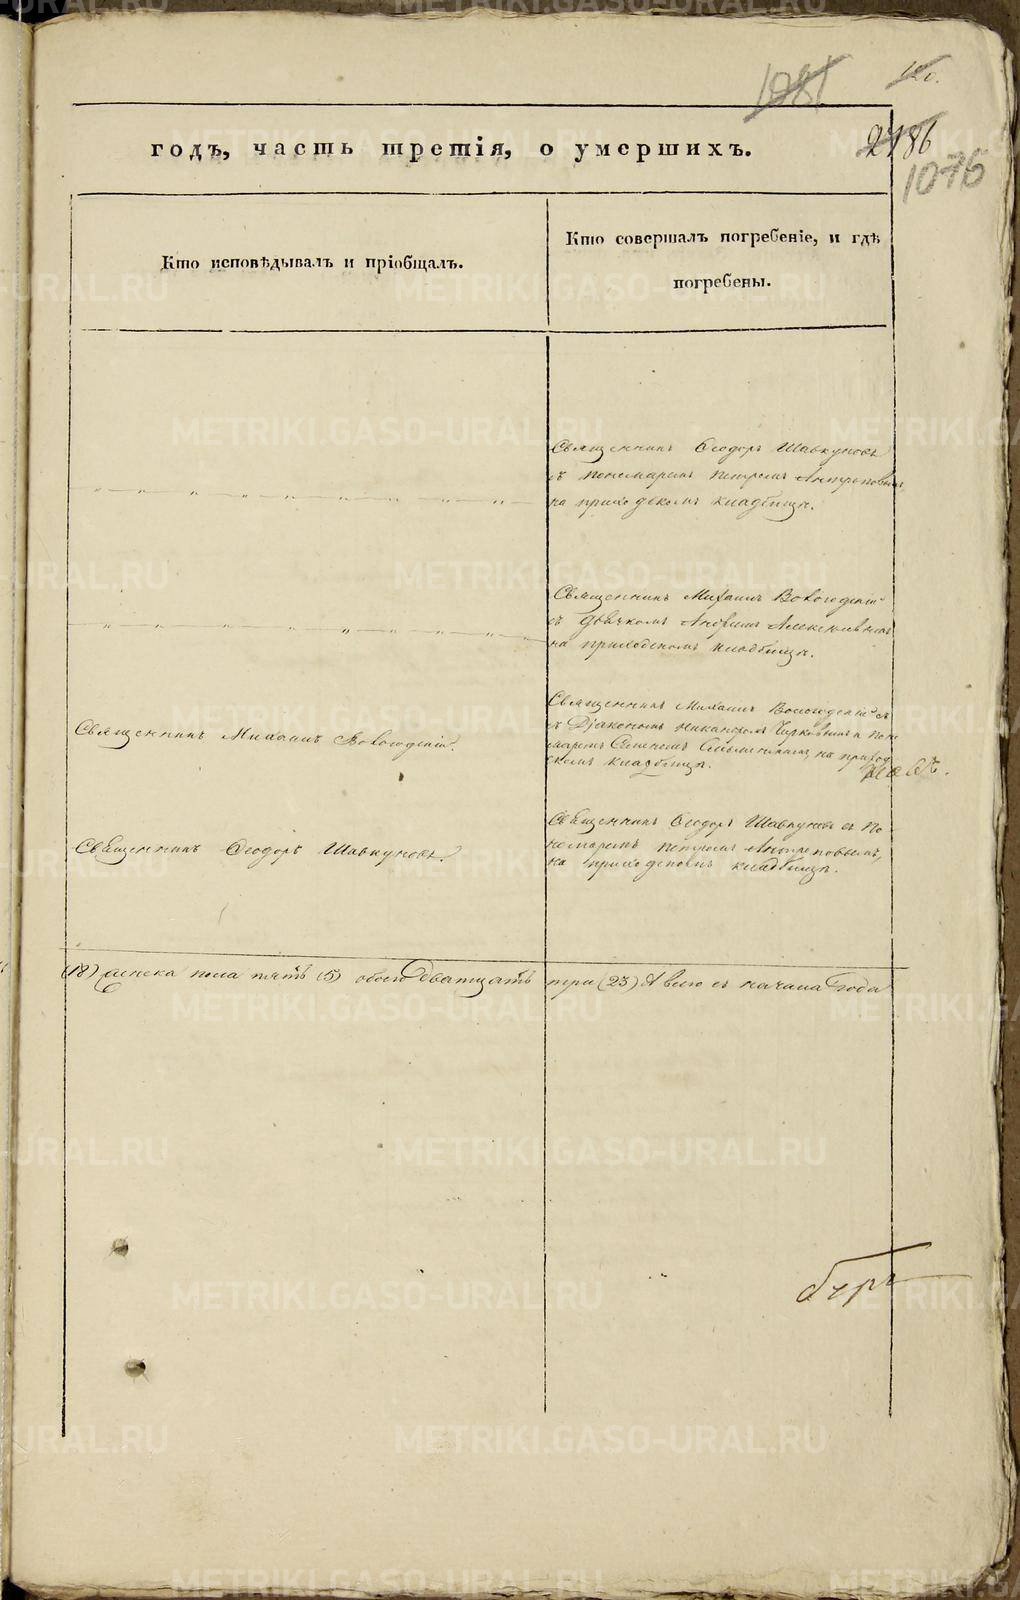 1081
120.
годъ, часть третія, о умершихъ.
2786
1076
Кто исповѣдывалъ и пріобщалъ.
Кто совершалъ погребеніе, и гдѣ
погребены.
Священникъ Ѳеодоръ Шавкуновъ
съ пономаремъ Петромъ Антроповымъ
на приходскомъ кладбищѣ.
Священникъ Михаилъ Вологодскій
съ дьячкомъ
на приходскомъ кладбищѣ.
Священникъ Михаилъ Вологодскій.
Священникъ Михаилъ Вологодскій
съ Діакономъ Никаноромъ и поно
маремъ на приход
скомъ кладбищѣ.
Священникъ Ѳеодоръ Шавкуновъ.
Священникъ Ѳеодоръ Шавкуновъ съ по
номаремъ Петромъ Антроповымъ,
на приходскомъ кладбищѣ.
(18) женска пола пять (5) обоего двадцать три (23) А всего съ начала года
METRIKI.GASO-URAL.RU